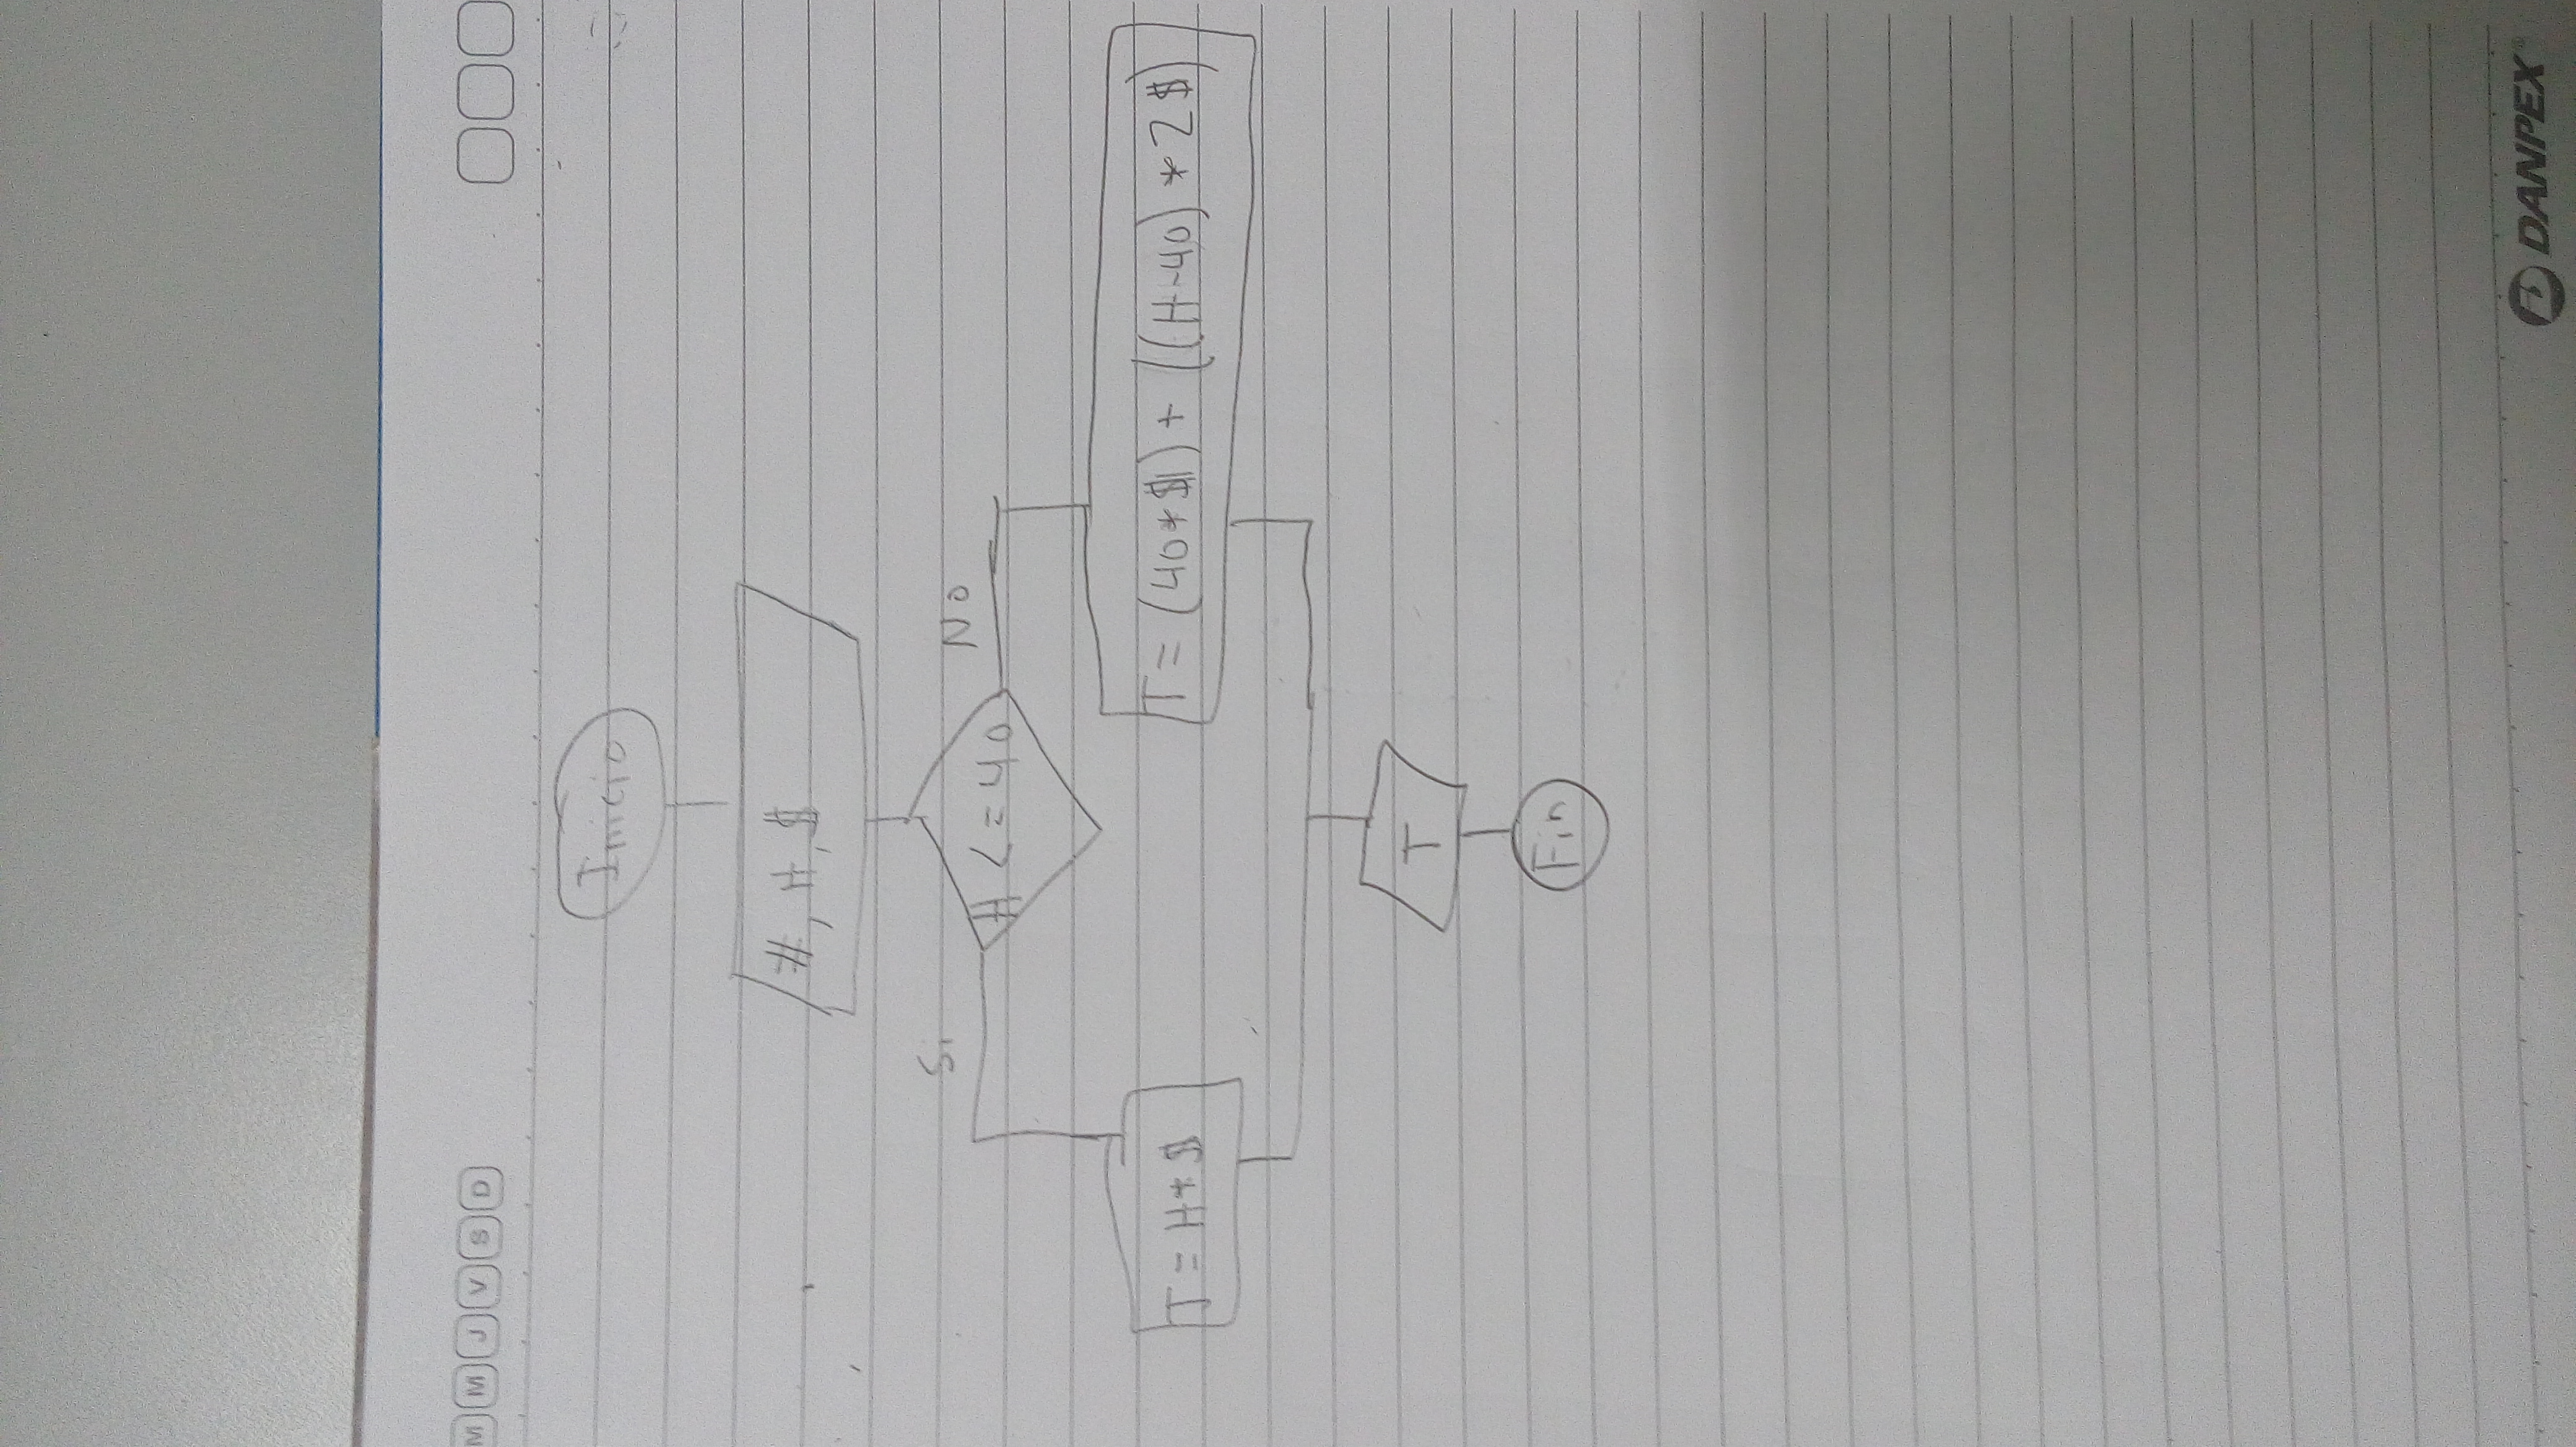 M M J V S D
Inicio
#, H, $
Si
No
# <= 40
T = H * $
T = (40 * $) + ((H-40) * 2$)
T
Fin
DANPEX